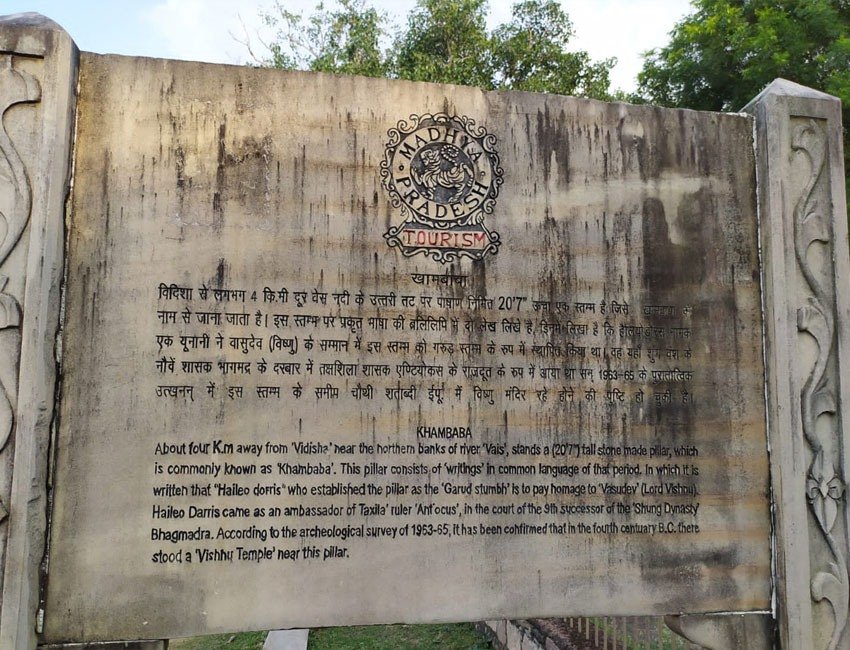 MADHYA
PRADESH
TOURISM
खामबाबा
विदिशा से लगभग 4 कि.मी दूर वेस नदी के उत्तरी तट पर पाषाण निर्मित 20'7" ऊंचा एक स्तम्भ है जिसे के
नाम से जाना जाता है। इस स्तम्भ पर प्रकृत भाषा की ब्रतिलिपि में दो लेख लिखे है, इनमें लिखा है कि नामक
एक यूनानी ने वासुदेव (विष्णु) के सम्मान में इस स्तम्भ को गरुड़ स्तम्भ के रुप में स्थापित किया था। वह यहाँ शुंग वंश के
नौवें शासक भागमद्र के दरबार में तक्षशिला शासक एण्टियोकस के राजदूत के रुप में आया था सन् 1963-65 के पुरातात्विक
उत्खनन् में इस स्तम्भ के समीप चौथी शताब्दी ईपू. में विष्णु मंदिर रहे होने की पुष्टि हो चुकी है।
KHAMBABA
About four K.m away from 'Vidisha' near the northern banks of river 'Vais', stands a (20'7") tall stone made pillar, which
is commonly known as 'Khambaba'. This pillar consists of 'writings' in common language of that period. In which it is
written that "Haileo dorris" who established the pillar as the 'Garud stumbh' is to pay homage to 'Vasudev' (Lord Vishnu).
Haileo Darris came as an ambassador of Taxila' ruler 'Ant'ocus', in the court of the 9th successor of the 'Shung Dynasty'
Bhagmadra. According to the archeological survey of 1963-65, it has been confirmed that in the fourth centuary B.C. there
stood a 'Vishhu Temple' near this pillar.